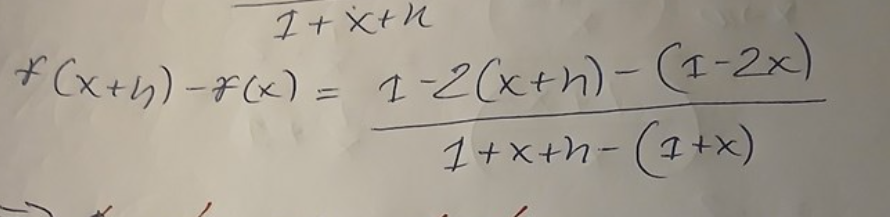 1+x+h
f(x+h)-f(x) = \frac{1-2(x+h)-(1-2x)}{1+x+h-(1+x)}